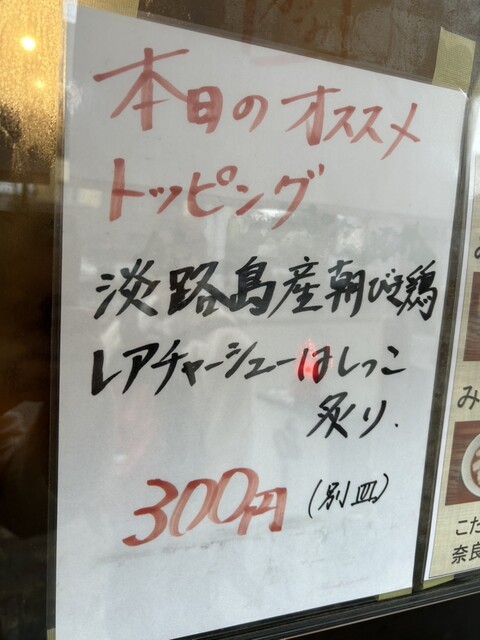 本日のオススメ
トッピング
淡路島産朝びき鶏
レアチャーシューはしっこ
炙り.
300円 (別皿)
み
こだ
奈良